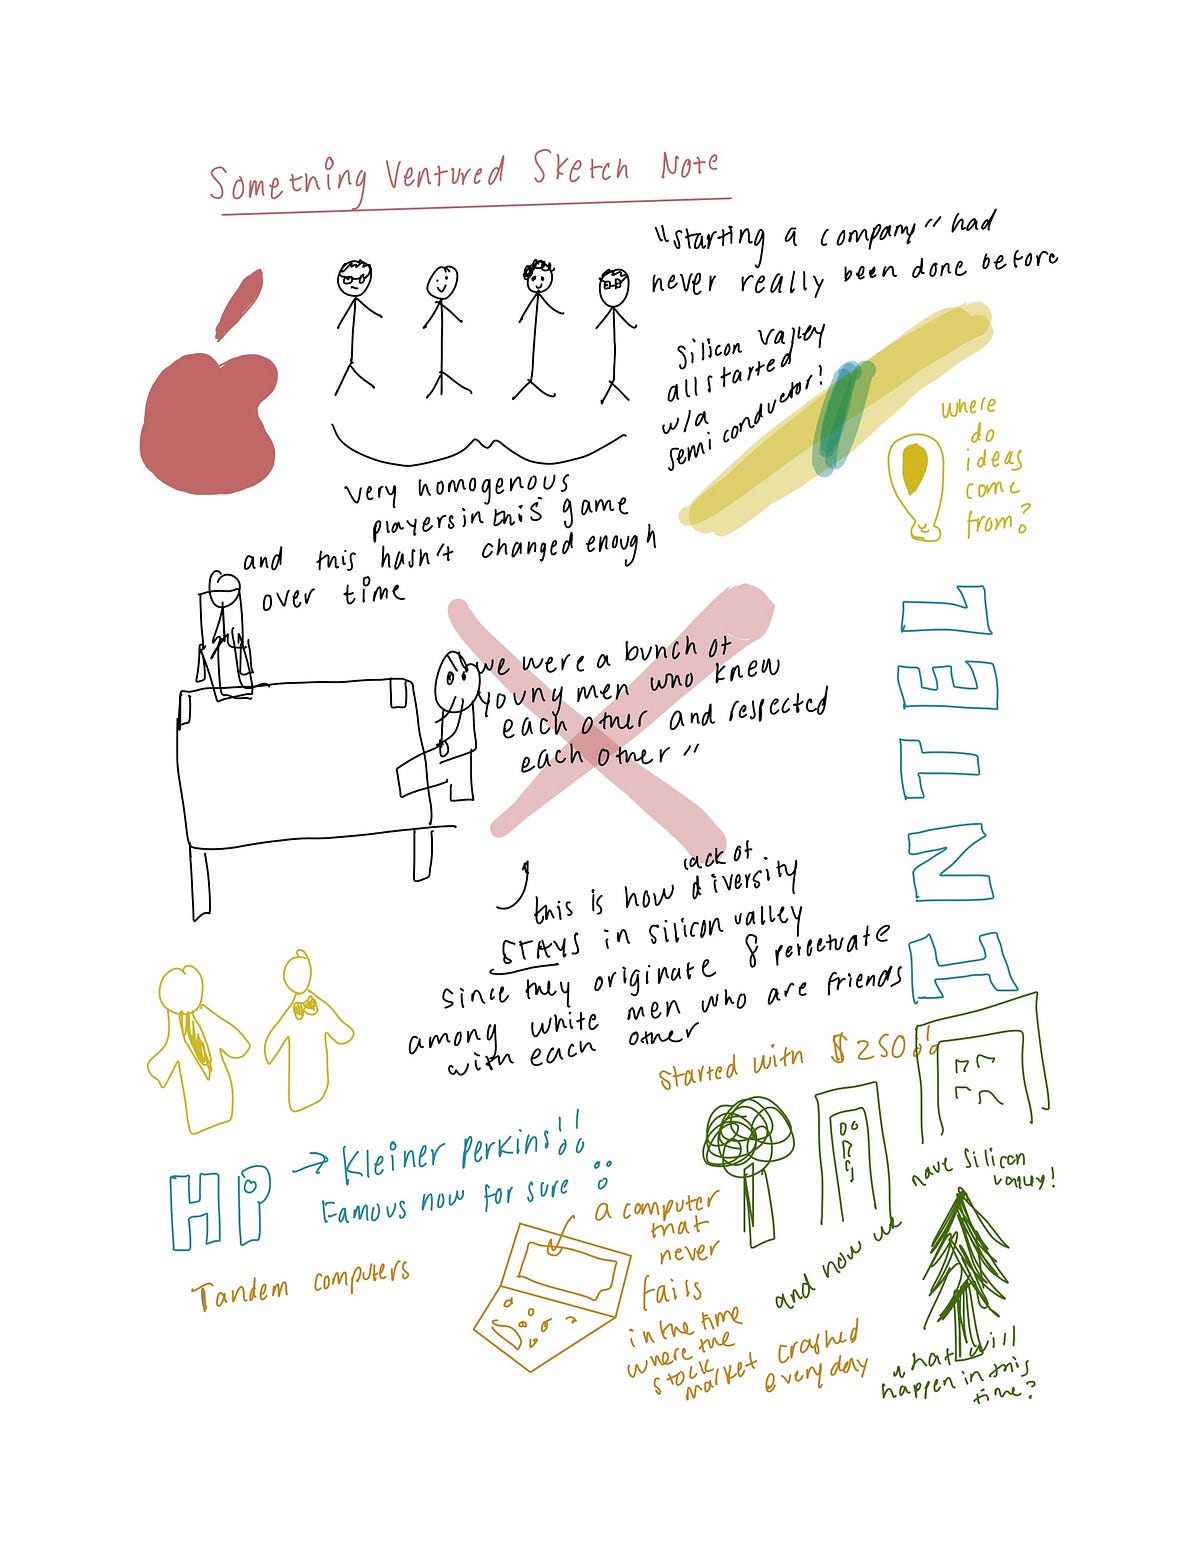 Something Ventured Sketch Note
"starting a company" had
never really been done before
Silicon Valley
all started
w/a
semiconductor!
where
do
ideas
come
from?
very homogenous
players in this game
and this hasn't changed enough
over time
we were a bunch of
young men who knew
each other and respected
each other"
INTEL
lack of
this is how diversity
STAYS in silicon valley
since they originate & perpetuate
among white men who are friends
with each other
started with $250!!
HP → Kleiner Perkins!!
Famous now for sure
Tandem computers
a computer
that
never
fails
in the time
where the
stock
market crashed
everyday
and now we
have silicon
valley!
what will
happen in this
time?